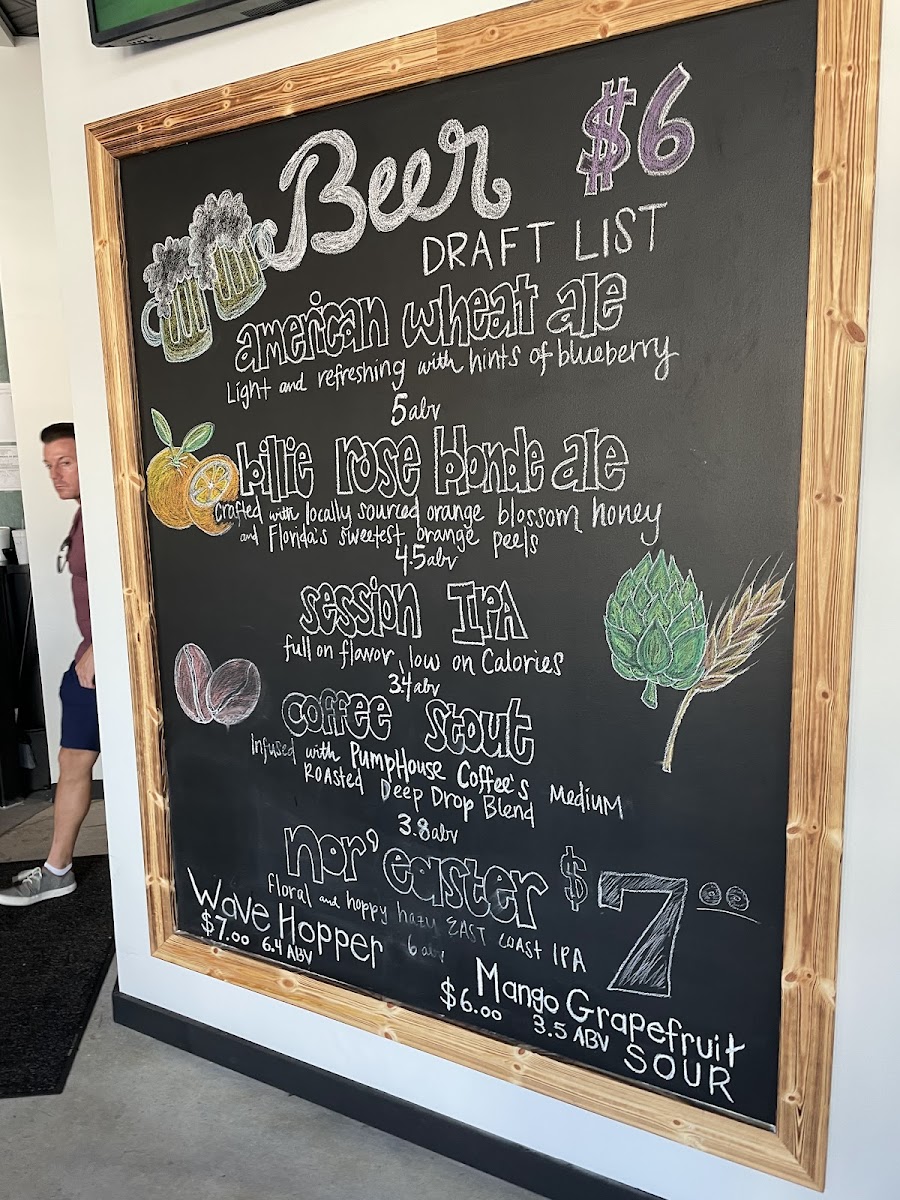 Beer $6
DRAFT LIST
american wheat ale
Light and refreshing with hints of blueberry
5abv
billie rose blonde ale
Crafted with locally sourced orange blossom honey
and Florida's sweetest orange peels
4.5abv
session IPA
full on flavor, low on Calories
3.4abv
coffee stout
Infused with PumpHouse Coffee's Medium
Roasted Deep Drop Blend
3.8abv
nor'easter $7.00
floral and hoppy hazy EAST COAST IPA
6abv
Wave Hopper
$7.00 6.4 ABV
Mango Grapefruit
$6.00 3.5 ABV SOUR